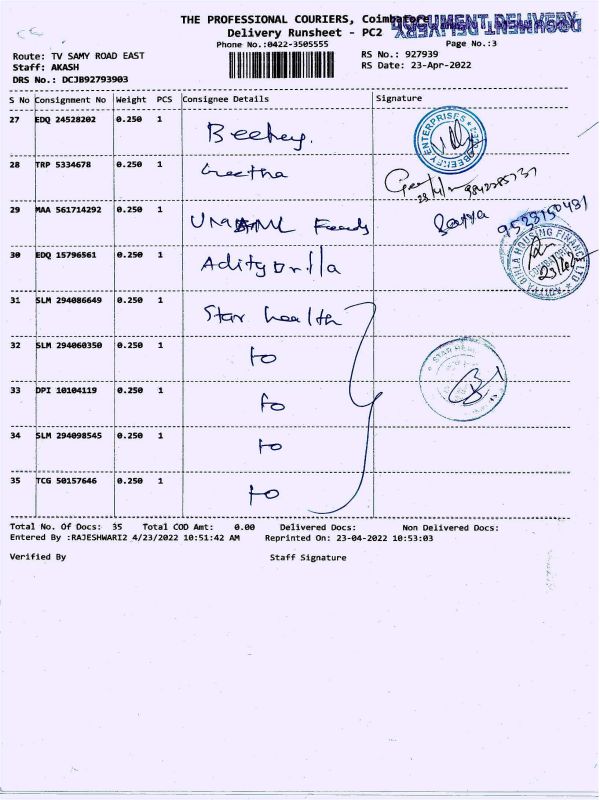 THE PROFESSIONAL COURIERS, Coimbatore
Delivery Runsheet - PC2
Phone No.:0422-3505555 Page No.:3
Route: TV SAMY ROAD EAST RS No.: 927939
Staff: AKASH RS Date: 23-Apr-2022
DRS No.: DCJB92793903
S No Consignment No Weight PCS Consignee Details Signature
27 EDQ 24528202 0.250 1
28 TRP 5334678 0.250 1 Geetha
29 MAA 561714292 0.250 1 Feeds Satya
30 EDQ 15796561 0.250 1
31 SLM 294086649 0.250 1 Star health
32 SLM 294060350 0.250 1 to
33 DPI 10104119 0.250 1 to
34 SLM 294098545 0.250 1 to
35 TCG 50157646 0.250 1 to
Total No. Of Docs: 35 Total COD Amt: 0.00 Delivered Docs: Non Delivered Docs:
Entered By :RAJESHWARI2 4/23/2022 10:51:42 AM Reprinted On: 23-04-2022 10:53:03
Verified By Staff Signature